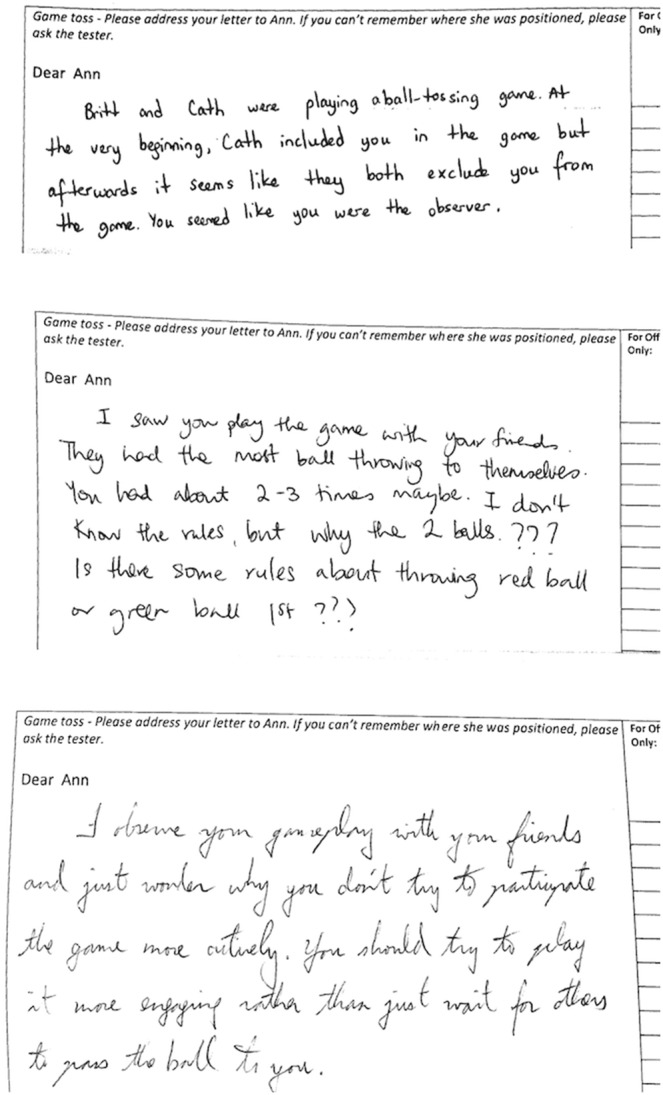 Game toss - Please address your letter to Ann. If you can't remember where she was positioned, please
ask the tester.
For
Only
Dear Ann
Britt and Cath were playing a ball-tossing game. At
the very beginning, Cath included you in the game but
afterwords it seems like they both exclude you from
the game. You seemed like you were the observer.
Game toss - Please address your letter to Ann. If you can't remember where she was positioned, please
ask the tester.
For Off
Only:
Dear Ann
I saw you play the game with your friends.
They had the most ball throwing to themselves.
You had about 2-3 times maybe. I don't
know the rules, but why the 2 balls. ???
Is there some rules about throwing red ball
or green ball 1st ???
Game toss - Please address your letter to Ann. If you can't remember where she was positioned, please
ask the tester.
For Of
Only:
Dear Ann
I observe your gameplay with your friends
and just wonder why you don't try to participate
the game more actively. You should try to play
it more engaging rather than just wait for others
to pass the ball to you.